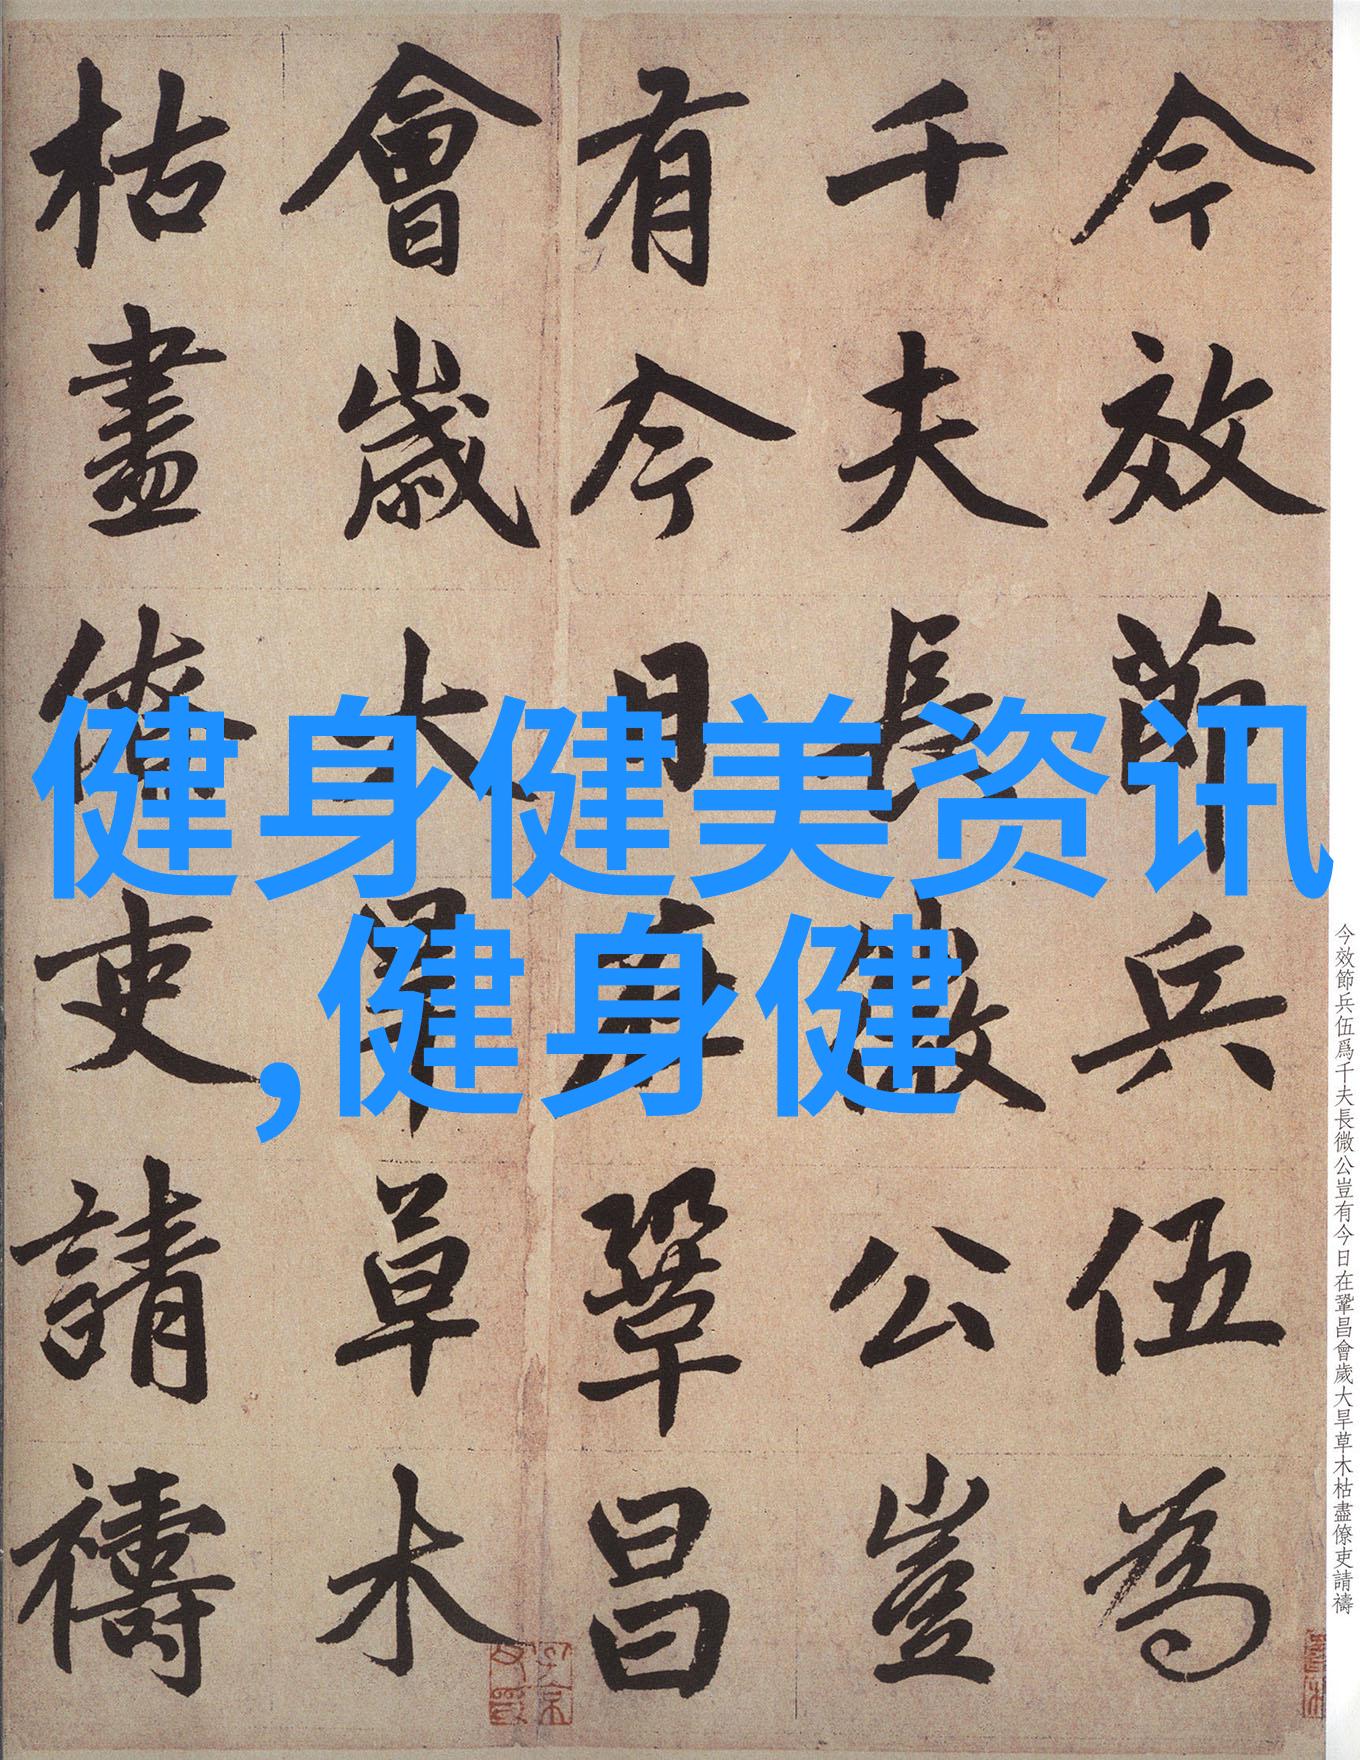 今效節兵伍為
千夫長微公豈
有今日在鞏昌
會歲大旱草木
枯盡僚吏請禱
健身健美资讯
,健身健
今效節兵伍爲千夫長微公豈有今日在鞏昌會歲大旱草木枯盡僚吏請禱